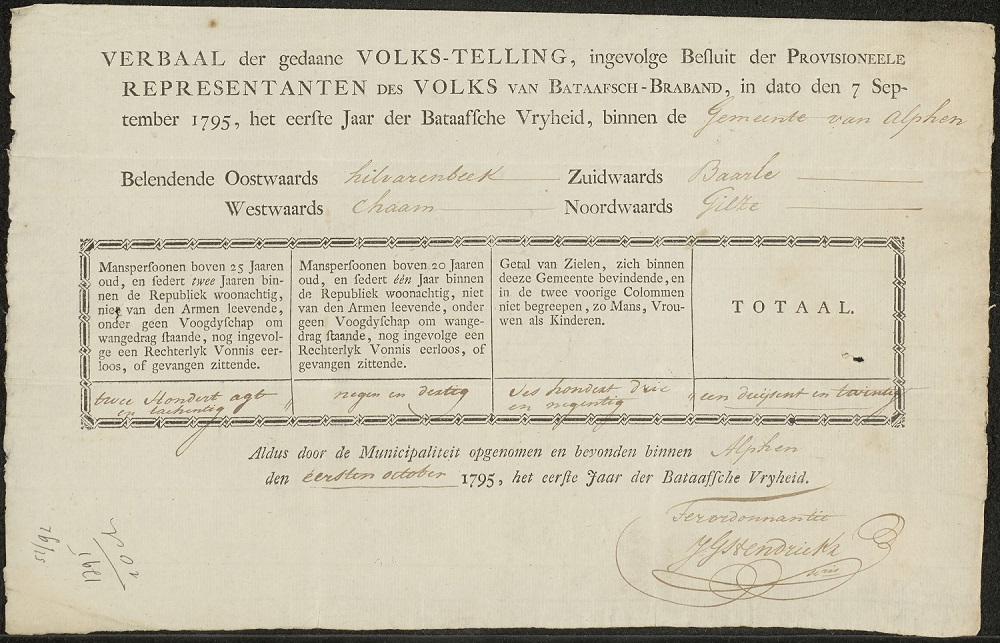 VERBAAL der gedaane VOLKS-TELLING, ingevolge Beſluit der PROVISIONEELE
REPRESENTANTEN DES VOLKS VAN BATAAFSCH-BRABAND, in dato den 7 Sep-
tember 1795, het eerſte Jaar der Bataafſche Vryheid, binnen de Gemeente van Alphen
Belendende Ooſtwaards hilvarenbeek Zuidwaards Baarle
Weſtwaards Chaam Noordwaards Gilze
Mansperſoonen boven 25 Jaaren
oud, en ſedert twee Jaaren bin-
nen de Republiek woonachtig,
niet van den Armen leevende,
onder geen Voogdyſchap om
wangedrag ſtaande, nog ingevol-
ge een Rechterlyk Vonnis eer-
loos, of gevangen zittende.
twee Hondert agt
en tachentig
Mansperſoonen boven 20 Jaaren
oud, en ſedert één Jaar binnen
de Republiek woonachtig, niet
van den Armen leevende, onder
geen Voogdyſchap om wange-
drag ſtaande, nog ingevolge een
Rechterlyk Vonnis eerloos, of
gevangen zittende.
negen en dertig
Getal van Zielen, zich binnen
deeze Gemeente bevindende, en
in de twee voorige Colommen
niet begreepen, zo Mans, Vrou-
wen als Kinderen.
ses hondert drie
en negentig
TOTAAL.
een duijsent en twintig
Aldus door de Municipaliteit opgenomen en bevonden binnen Alphen
den eersten october 1795, het eerſte Jaar der Bataafſche Vryheid.
Ter ordonnantie
JGHendrickx
1291